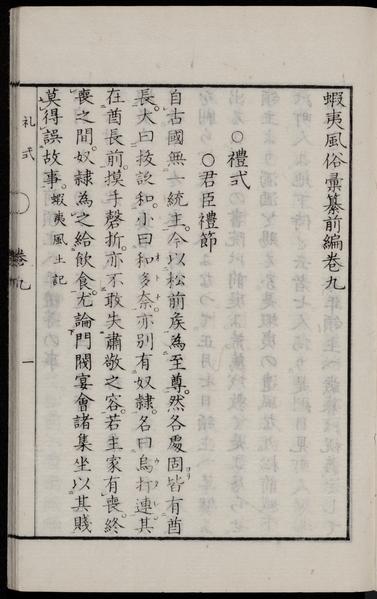 蝦夷風俗彙纂前編巻九
○禮式
○君臣禮節
自古國無一統主。今以松前矦為至尊。然各處固皆有酋
長。大曰按訟和。小曰和多奈。亦別有奴隷。名曰烏打連。其
在酋長前。摸手磬折。亦不敢失肅敬之容。若主家有喪終
喪之間。奴隷為之給飲食。尤論門閥宴會諸集坐以其賤
莫得誤故事。蝦夷風土記
礼式
巻九
一